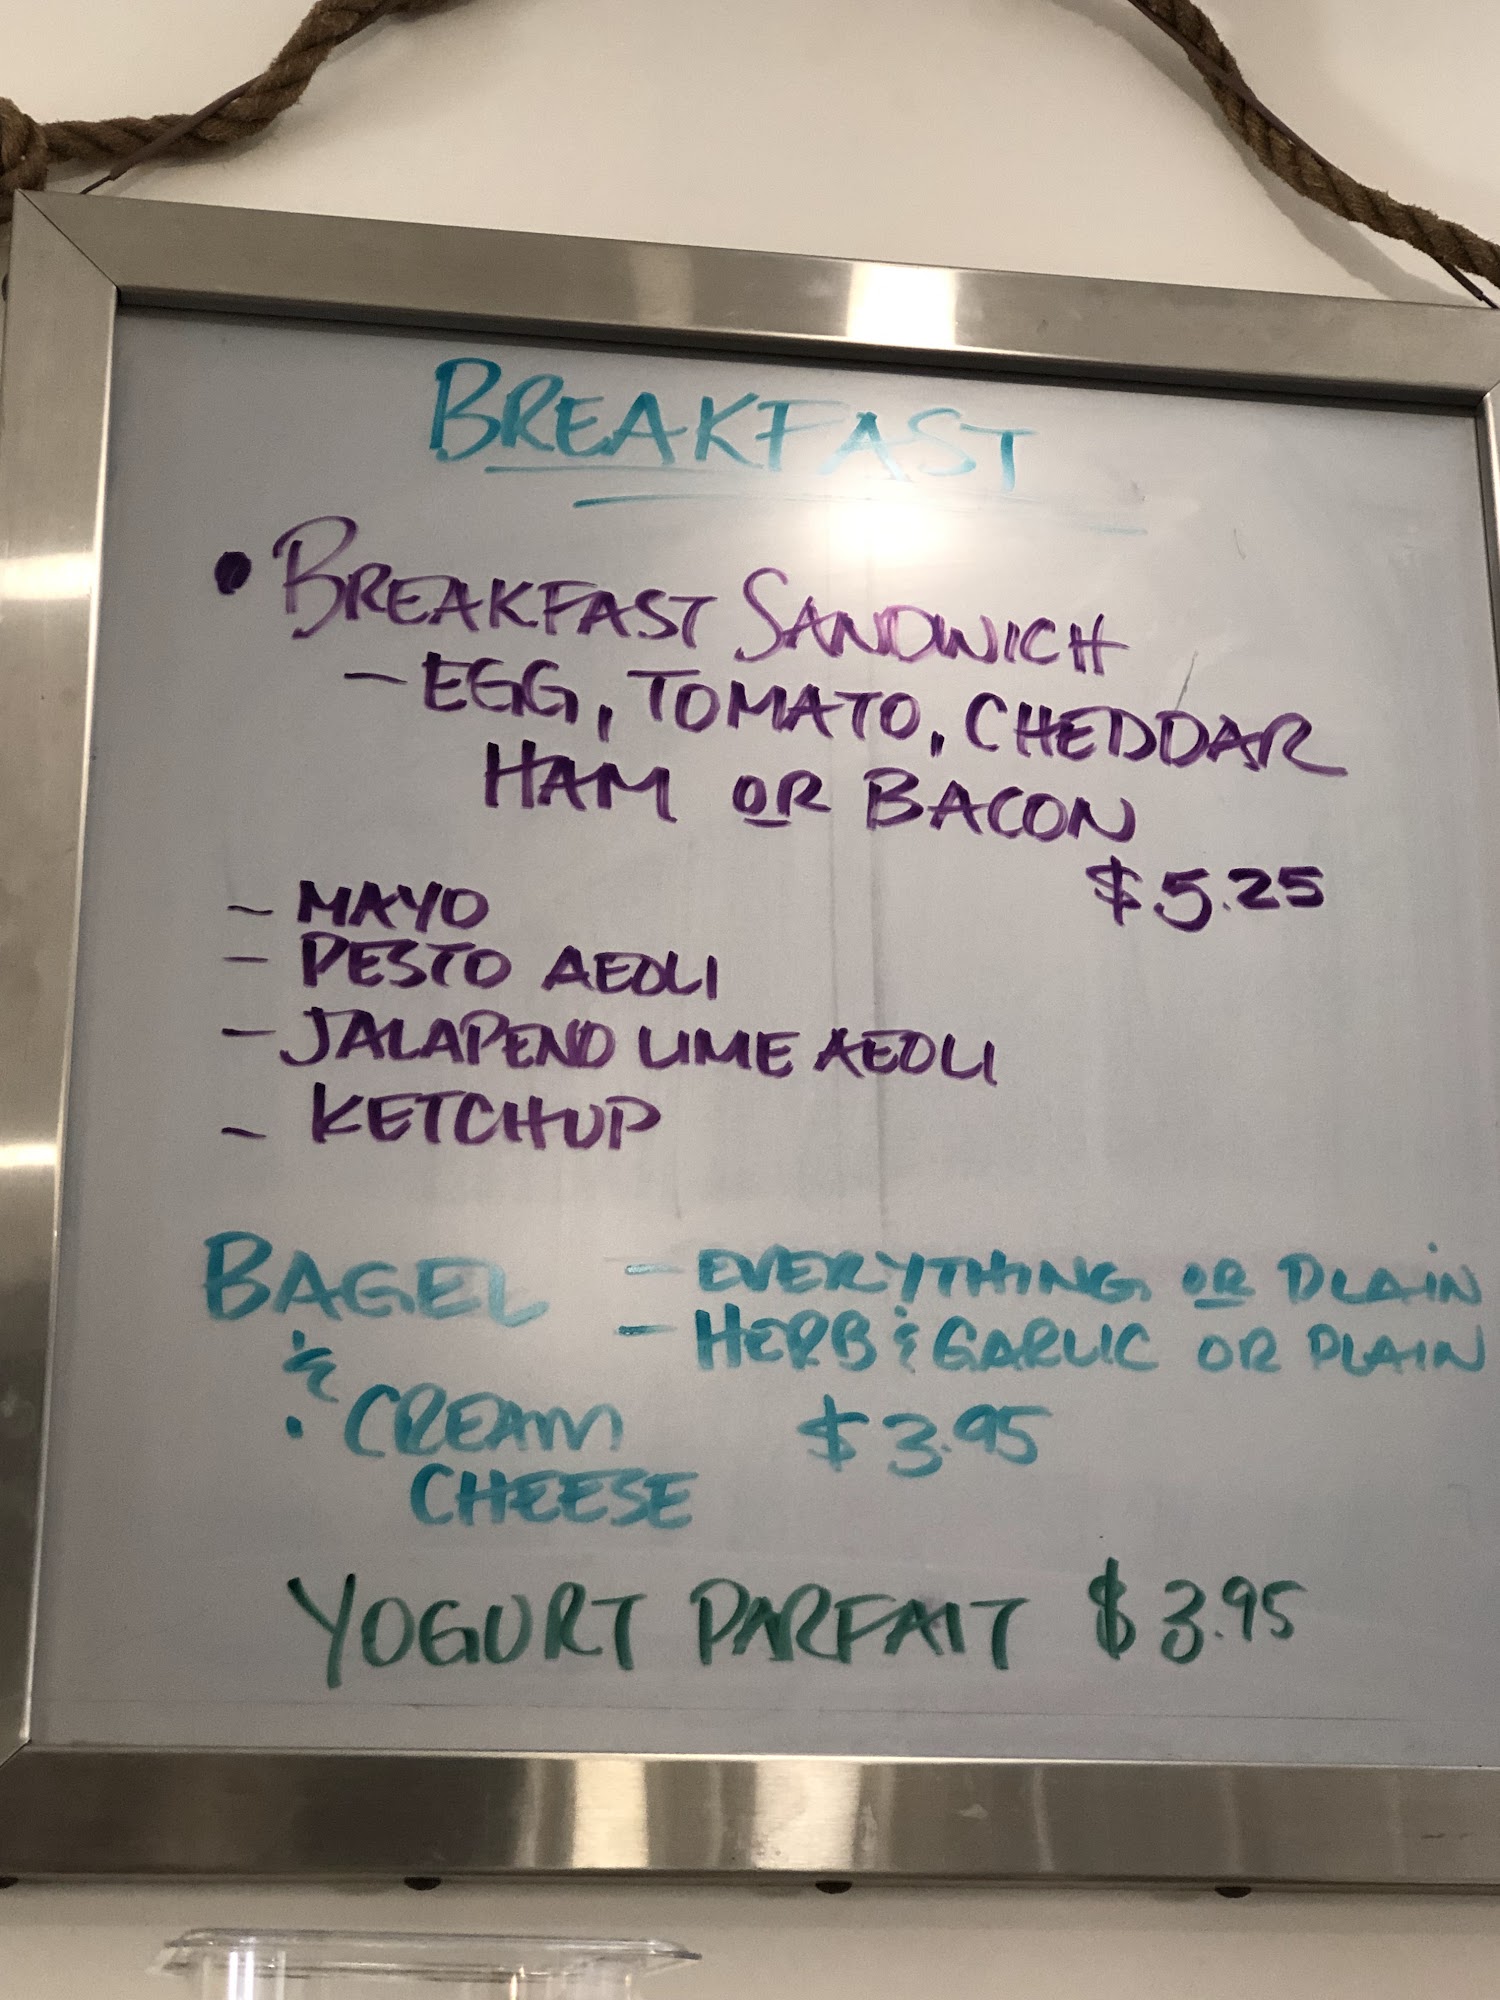 BREAKFAST
• BREAKFAST SANDWICH
- EGG, TOMATO, CHEDDAR
HAM OR BACON
$5.25
- MAYO
- PESTO AEOLI
- JALAPENO LIME AEOLI
- KETCHUP
BAGEL - EVERYTHING OR PLAIN
& - HERB & GARLIC OR PLAIN
• CREAM $3.95
CHEESE
YOGURT PARFAIT $3.95